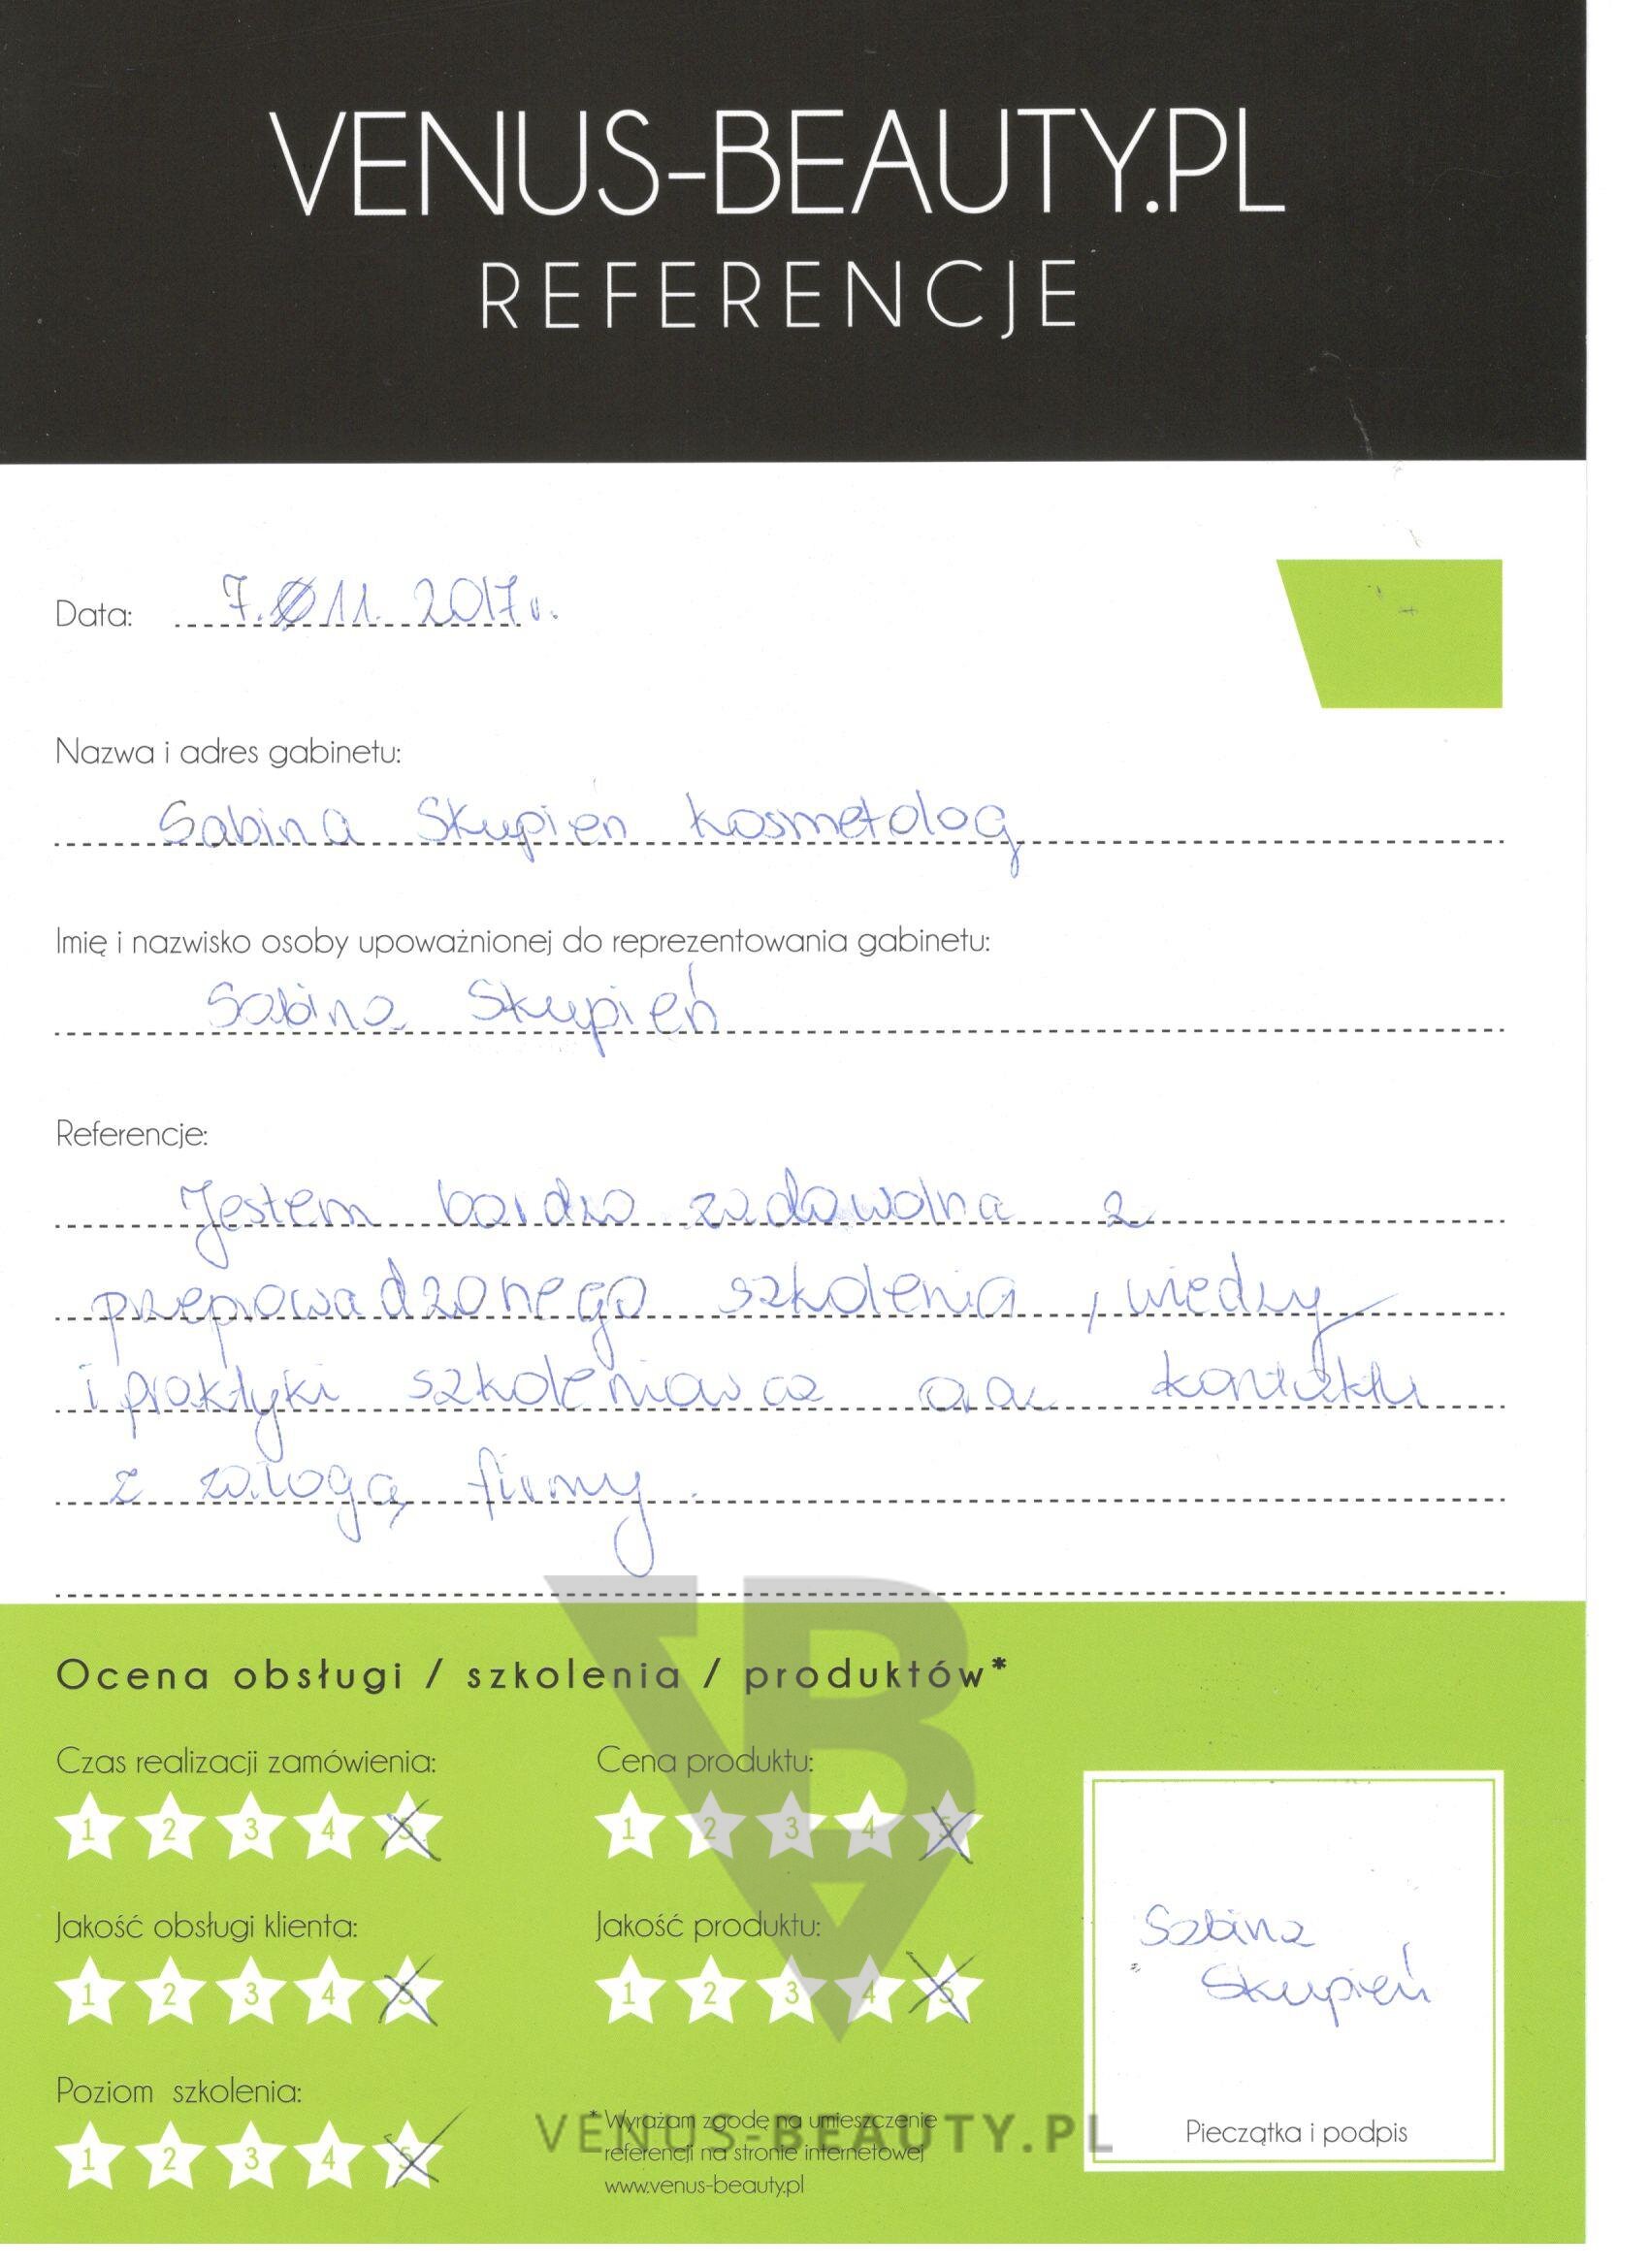 VENUS-BEAUTY.PL
REFERENCJE
Data: 7.11.2017r.
Nazwa i adres gabinetu:
Sabina Skupien kosmetolog
Imię i nazwisko osoby upoważnionej do reprezentowania gabinetu:
Sabina Skupień
Referencje:
Jestem bardzo zadowolna z
przeprowadzonego szkolenia, wiedzy
i praktyki szkoleniowca oraz kontaktu
z załogą firmy.
Ocena obsługi / szkolenia / produktów*
Czas realizacji zamówienia:
1 2 3 4 5
Cena produktu:
1 2 3 4 5
Jakość obsługi klienta:
1 2 3 4 5
Jakość produktu:
1 2 3 4 5
Poziom szkolenia:
1 2 3 4 5
* Wyrażam zgodę na umieszczenie
referencji na stronie internetowej
www.venus-beauty.pl
VENUS-BEAUTY.PL
Sabina
Skupień
Pieczątka i podpis